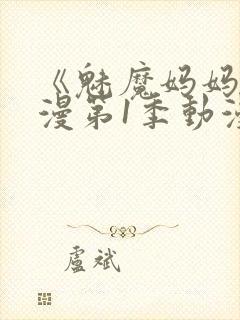 《魅魔妈妈
漫第1季動漫
盧斌